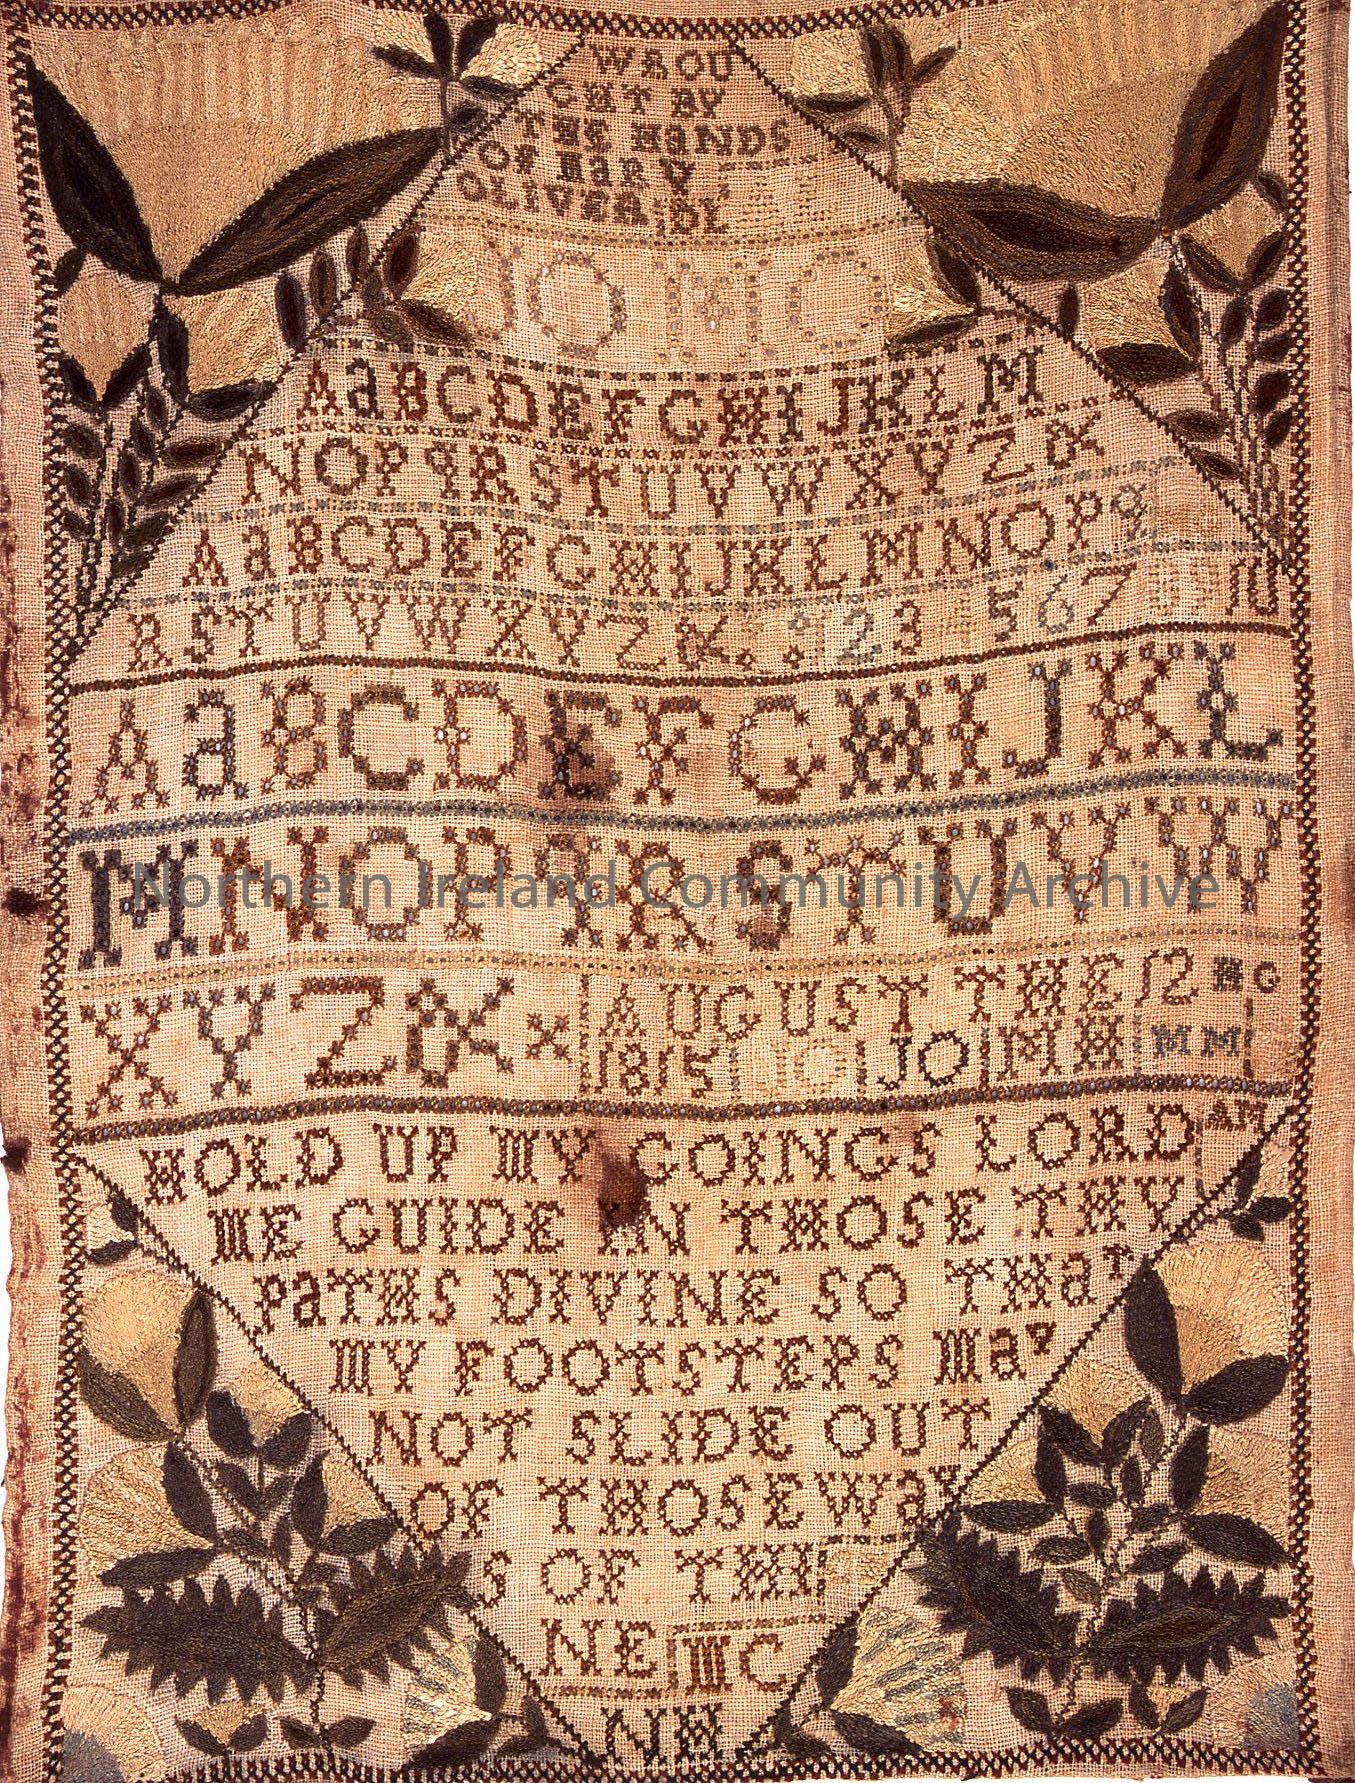 WROU
GHT BY
THE HaNDS
OF MaRY
OLIVER DL
JO MO
AaBCDEFGHIJKLM
NOPqRSTUVWXYZ&
AaBCDEFGHIJKLMNOPq
RSTUVWXYZ& 123 4 567
AaBCDEFGHIJKL
MNOPqRSTUVW
Northern Ireland Community Archive
XYZ& AUGUST THE 12
1815 JO JO MH MM
AM
HOLD UP MY GOINGS LORD
ME GUIDE IN THOSE THY
PaTHS DIVINE SO THaT
MY FOOTSTEPS MaY
NOT SLIDE OUT
OF THOSE WaY
S OF THI
NE MC
NH